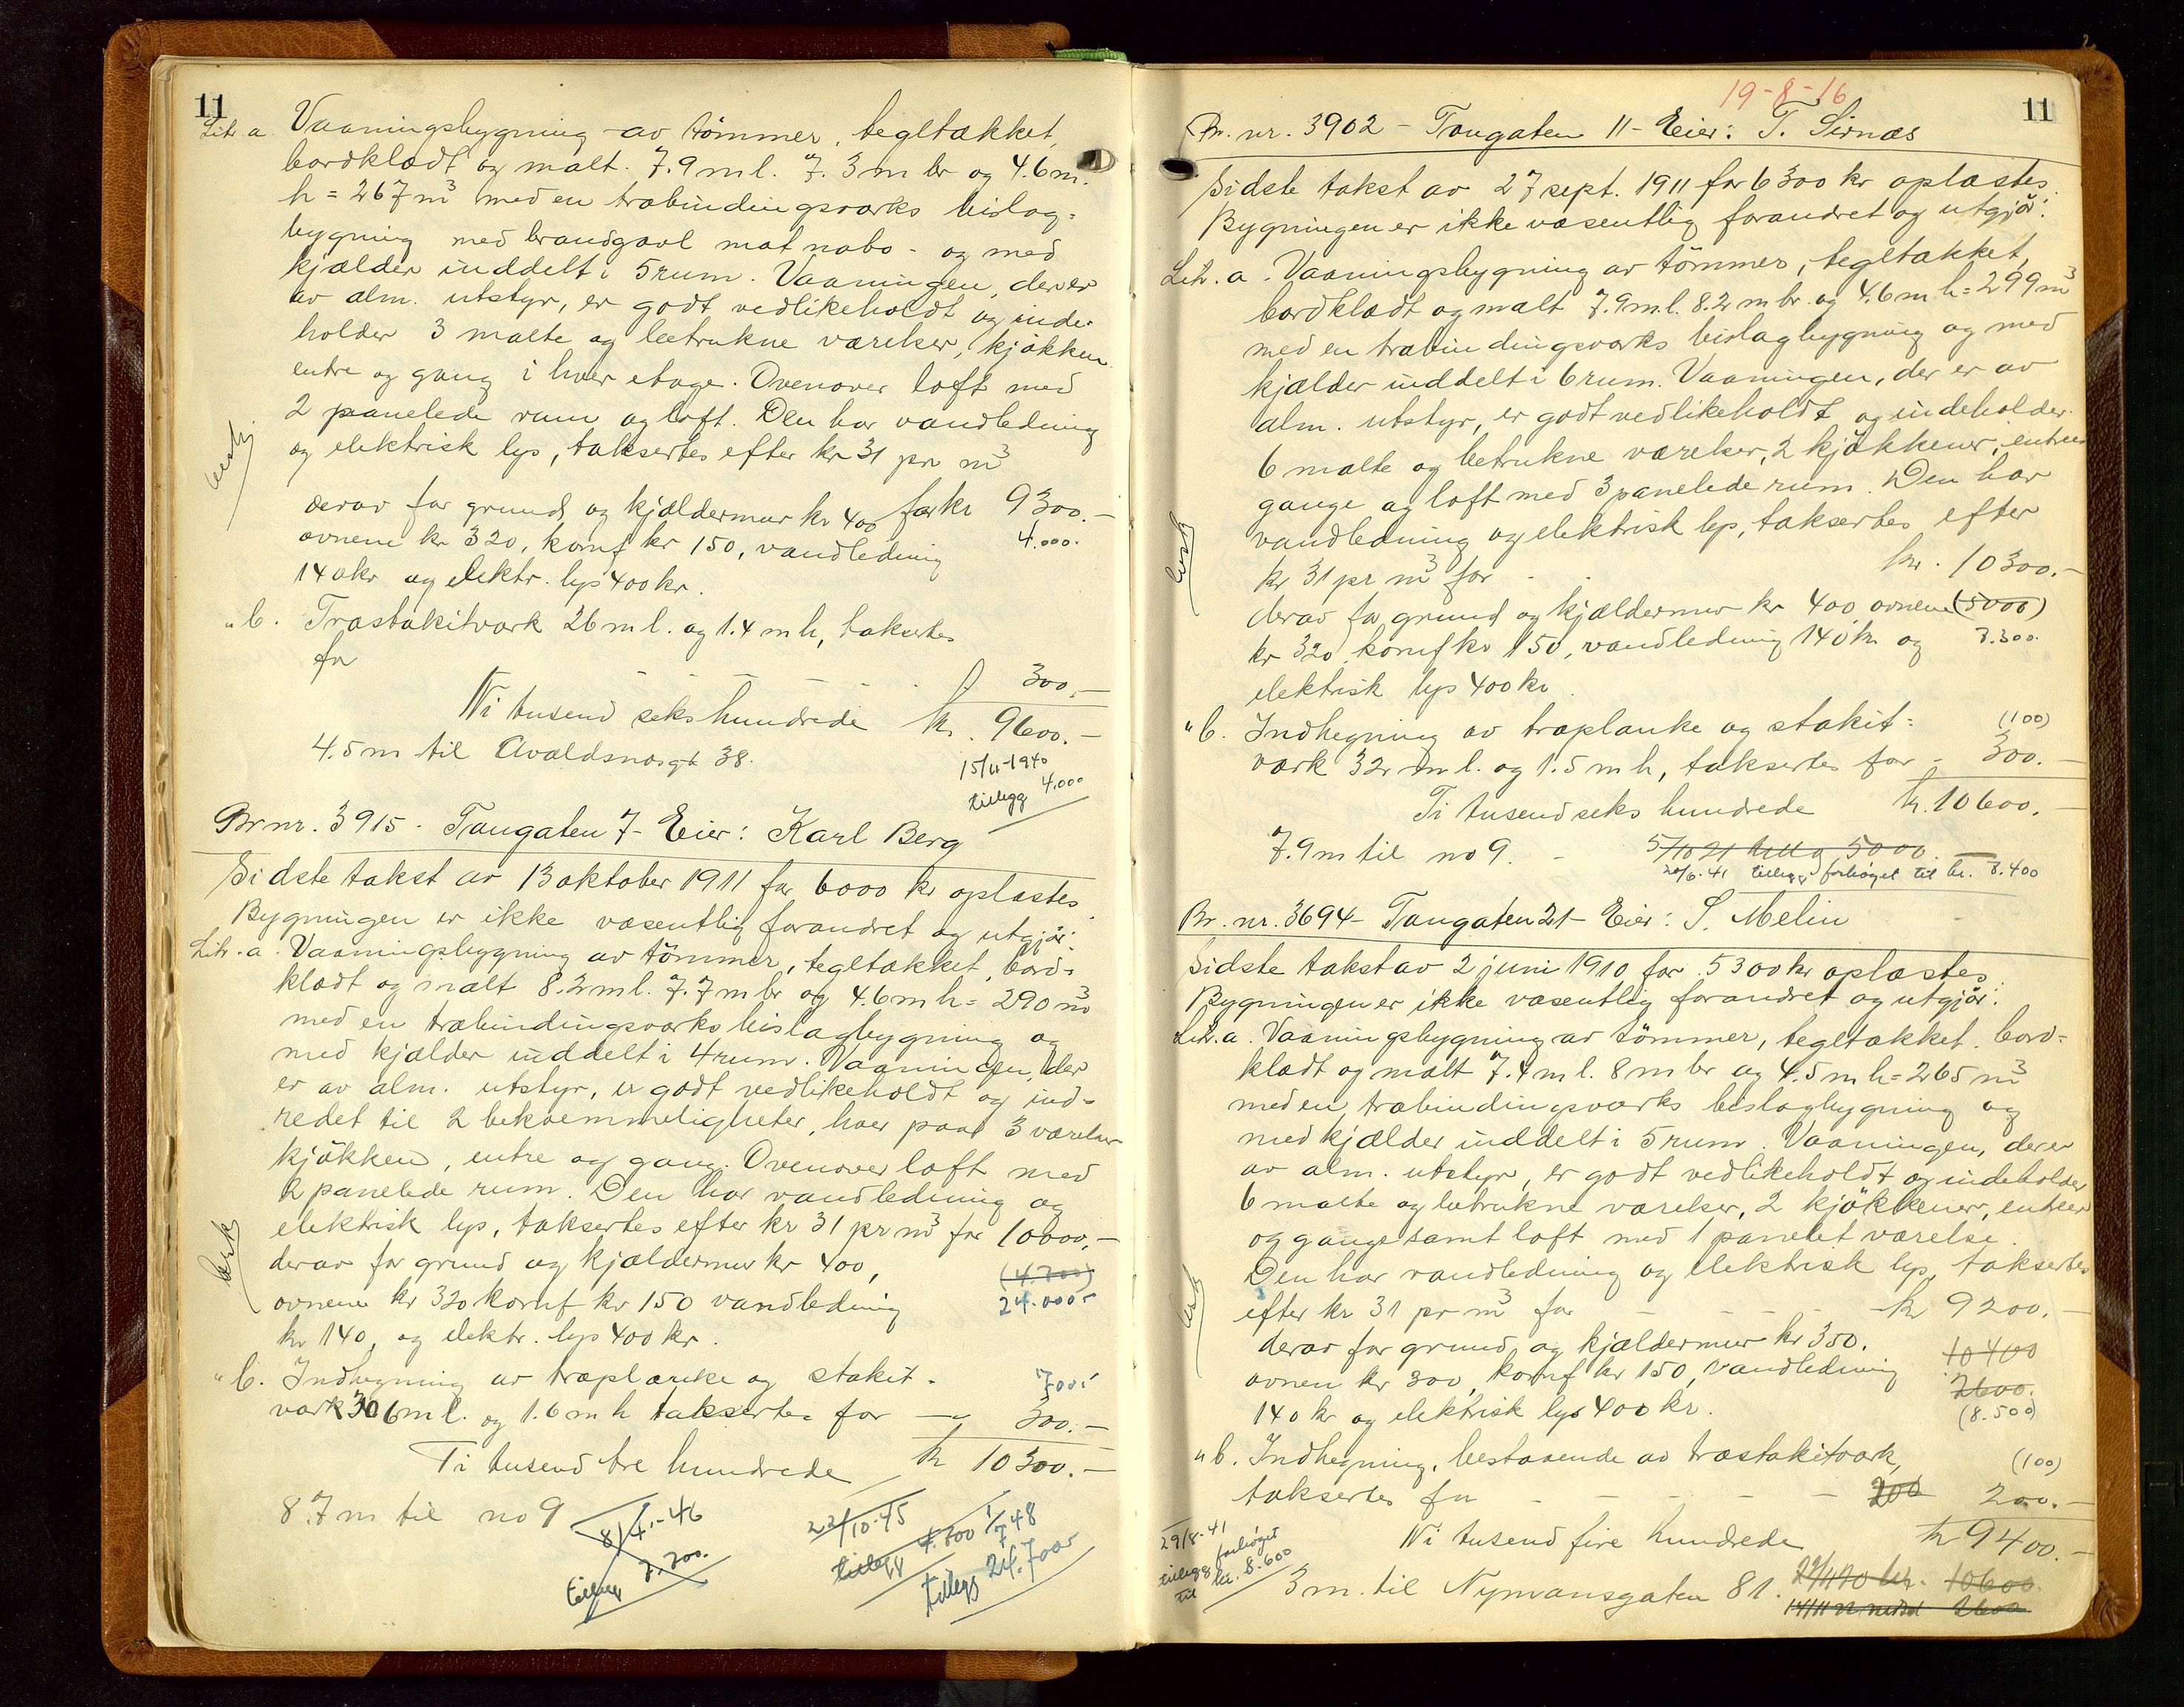 11
Litr a. Vaaningsbygning av tömmer, tegltækket,
bordklædt og malt. 7.9 m l. 7.3 m br og 4.6 m.
h = 267 m³ med en træbindingsværks bislag=
bygning med brandgavl mot nabo - og med
kjælder inddelt i 5 rum. Vaaningen, der er
av alm. utstyr, er godt vedlikeholdt og inde-
holder 3 malte og betrukne værelser, kjøkken
entre og gang i hver etage. Ovenover loft med
2 panelede rum og loft. Den har vandledning
og elektrisk lys, taksertes efter kr 31 pr m³
for kr 9300.-
derav for grund og kjældermur kr 400
4.000.
ovnene kr 320, komf kr 150, vandledning
140 kr og elektr. lys 400 kr.
" b. Træstakitværk 26 m l. og 1.4 m h, taksertes
for - - - - " 300.-
Ni tusend seks hundrede kr. 9600.-
4.5 m til Avaldsnesgt 38.
15/11-1940
tillegg 4.000
Br nr. 3915 - Tangaten 7 - Eier: Karl Berg
Sidste takst av 13 oktober 1911 for 6000 kr oplæstes.
Bygningen er ikke væsentlig forandret og utgjör:
Litr. a. Vaaningsbygning av tömmer, tegltækket, bord=
klædt og malt 8.2 m l. 7.7 m br og 4.6 m h = 290 m³
med en træbindingsværks bislagbygning og
med kjælder inddelt i 4 rum. Vaaningen, der
er av alm. utstyr, er godt vedlikeholdt og ind=
redet til 2 bekvemmeligheter, hver paa 3 værelser
kjökken, entre og gang. Ovenover loft med
2 panelede rum. Den har vandledning og
elektrisk lys, taksertes efter kr 31 pr m³ for 10000.-
derav for grund og kjældermur kr 400,
(4.200)
ovnene kr 320 komf kr 150 vandledning
24.000-
kr 140, og elektr. lys 400 kr.
" b. Indhegning av træplanke og stakit-
700.-
værk 36 m l. og 1.6 m h taksertes for - " 300.-
Ti tusend tre hundrede kr 10300.-
8.7 m til no 9
8/4-46
tillegg 7.200.
22/10-45
tillegg 4.300
1/7 48
tillegg 24.700-
19-8-16
11
Br. nr. 3902 - Tangaten 11 - Eier: T. Sirnæs
Sidste takst av 27 sept. 1911 for 6300 kr oplæstes.
Bygningen er ikke væsentlig forandret og utgjör:
Litr. a. Vaaningsbygning av tömmer, tegltækket,
bordklædt og malt 7.9 m l. 8.2 m br. og 4.6 m h = 299 m³
med en træbindingsværks bislagbygning og med
kjælder inddelt i 6 rum. Vaaningen, der er av
alm. utstyr, er godt vedlikeholdt og indeholder
6 malte og betrukne værelser, 2 kjökkener, entreer
gange og loft med 3 panelede rum. Den har
vandledning og elektrisk lys, taksertes efter
kr 31 pr m³ for - - kr. 10300.-
derav for grund og kjældermur kr 400, ovnene (5000)
kr 320, komf kr 150, vandledning 140 kr og 8.300.
elektrisk lys 400 kr.
" b. Indhegning av træplanke og stakit=
(100)
værk 32 m l. og 1.5 m h, taksertes for - 300.-
Ti tusend seks hundrede kr. 10600.-
7.9 m til no 9. -
5/10 21 tillæg 5000.
20/6-41 tillegg forhöyet til kr. 8.400
Br. nr. 3694 - Tangaten 21 - Eier: S. Melin
Sidste takst av 2 juni 1910 for 5300 kr oplæstes.
Bygningen er ikke væsentlig forandret og utgjör:
Litr. a. Vaaningsbygning av tömmer, tegltækket. bord=
klædt og malt 7.4 m l. 8 m br og 4.5 m h = 265 m³
med en træbindingsværks bislagbygning og
med kjælder inddelt i 5 rum. Vaaningen, der er
av alm. utstyr, er godt vedlikeholdt og indeholder
6 malte og betrukne værelser, 2 kjökkener, entreer
og gange samt loft med 1 panelet værelse.
Den har vandledning og elektrisk lys, taksertes
efter kr 31 pr m³ for - - - - kr 9200.-
derav for grund og kjældermur kr 350.
10400
ovnen kr 300, komf kr 150, vandledning
2600.
140 kr og elektrisk lys 400 kr.
(8.500)
" b. Indhegning, bestaaende av træstakitværk,
(100)
taksertes for - - - - - 200 200.-
Ni tusend fire hundrede kr 9400.-
29/8-41
tillegg forhöyet
til kr. 8.600
3 m. til Nymansgaten 81.
10600
2600